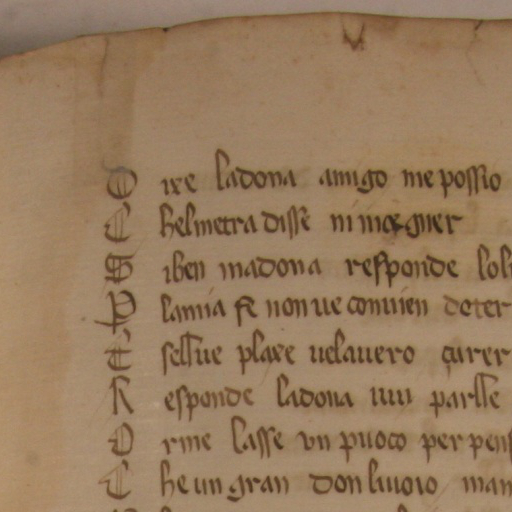 D ixe ladona amigo me possio
C helmetra disse ni
S iben madona responde lolr
P lamia fe non ue conuien deter
E sell ue plaxe uelauero çurer
R esponde ladona parlle
O rme lasse vn puoco per pens
C he un gran don liuoio man